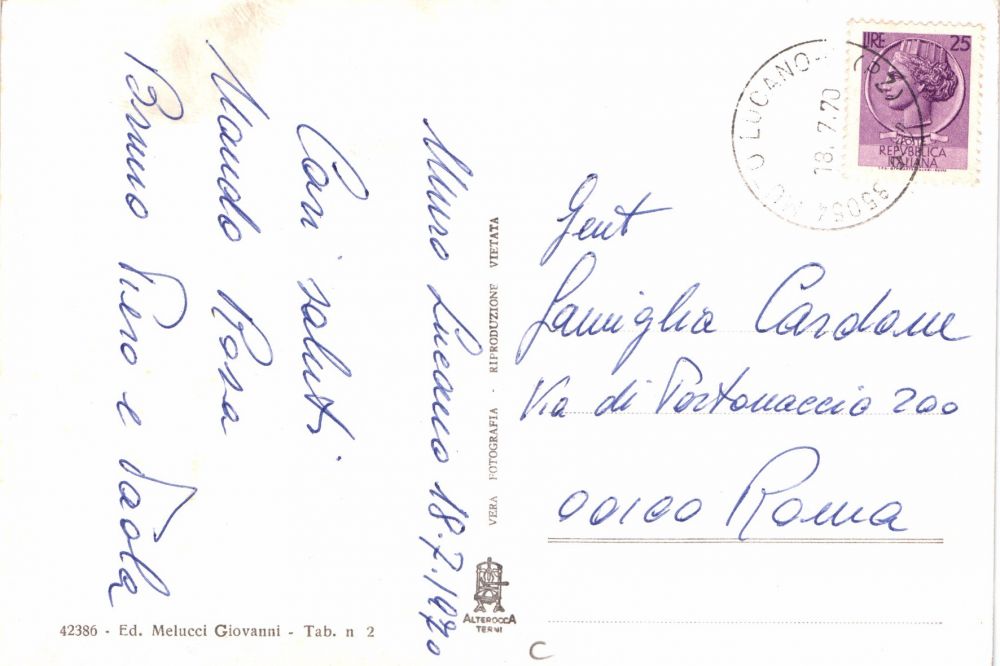 Muro Lucano 18.7.1970
Cari saluti
Nando Rosa
Bruno Piero e Paola
Gent
Famiglia Cardone
Via di Portonaccio 200
00100 Roma
LIRE 25
REPVBBLICA
ITALIANA
85054 MURO LUCANO
18.7.70
VERA FOTOGRAFIA - RIPRODUZIONE VIETATA
ALTEROCCA
TERNI
42386 - Ed. Melucci Giovanni - Tab. n 2
C